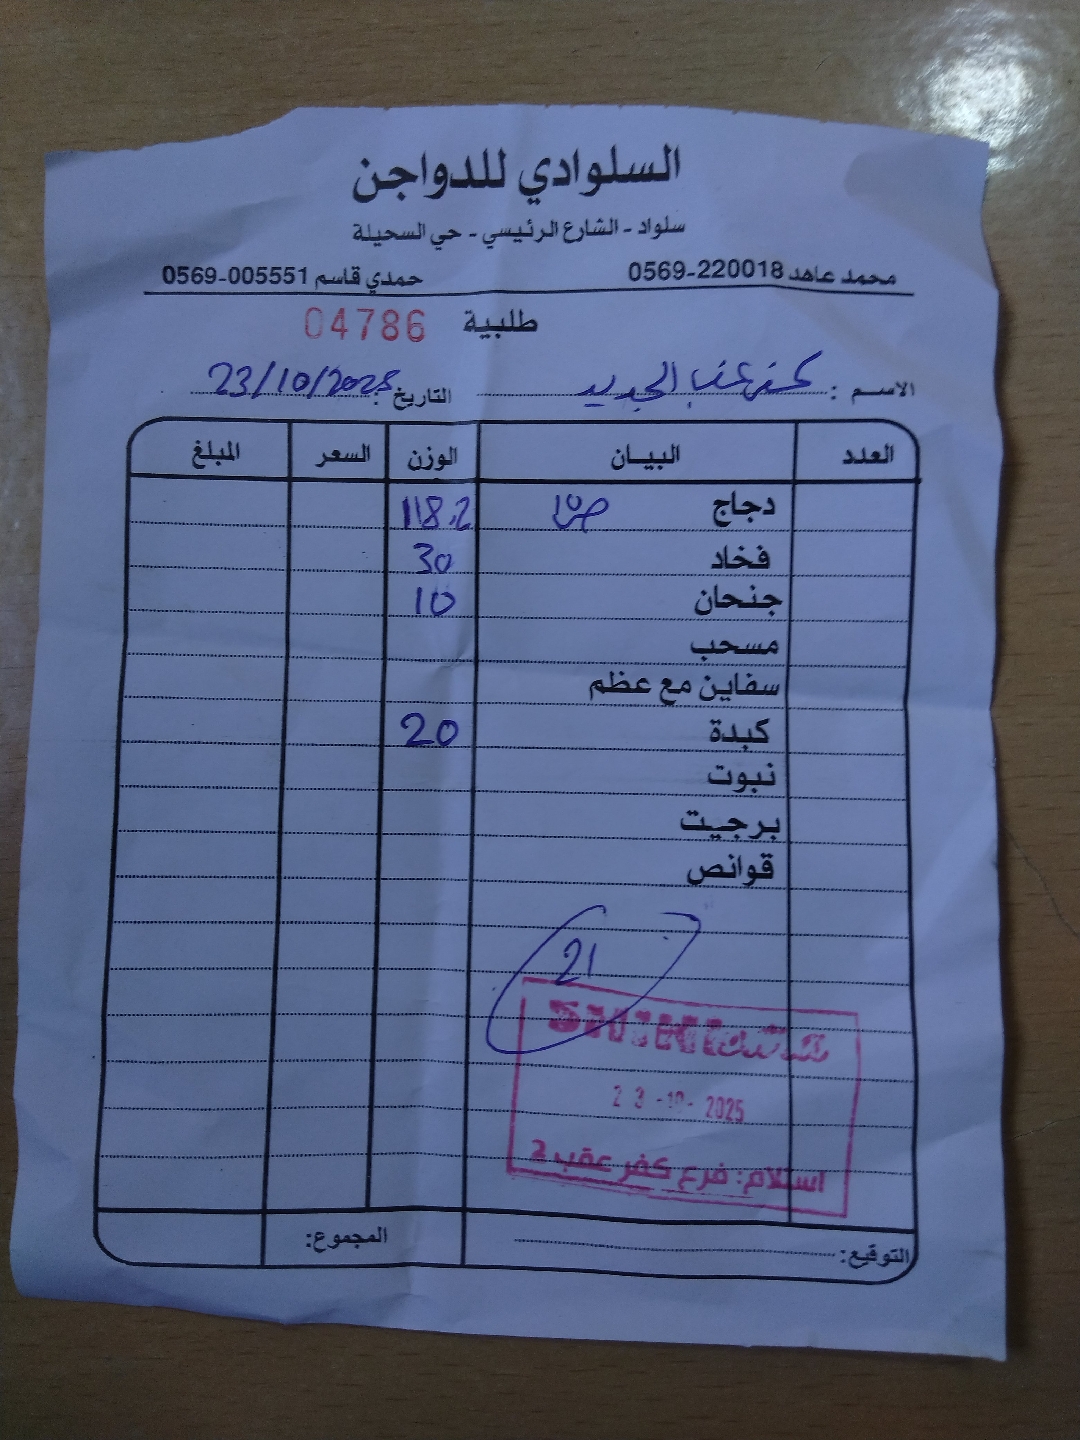 السلوادي للدواجن
سلواد - الشارع الرئيسي - حي السحيلة
محمد عاهد 220018-0569 حمدي قاسم 005551-0569
طلبية 04786
الاسم : كفر عقب الجديد التاريخ : 23/10/2025
العدد البيان الوزن السعر المبلغ
دجاج 118.2
فخاد 30
جنحان 10
مسحب
سفاين مع عظم
كبدة 20
نبوت
برجيت
قوانص
21
23-10-2025
استلام: فرع كفر عقب 2
التوقيع: المجموع: